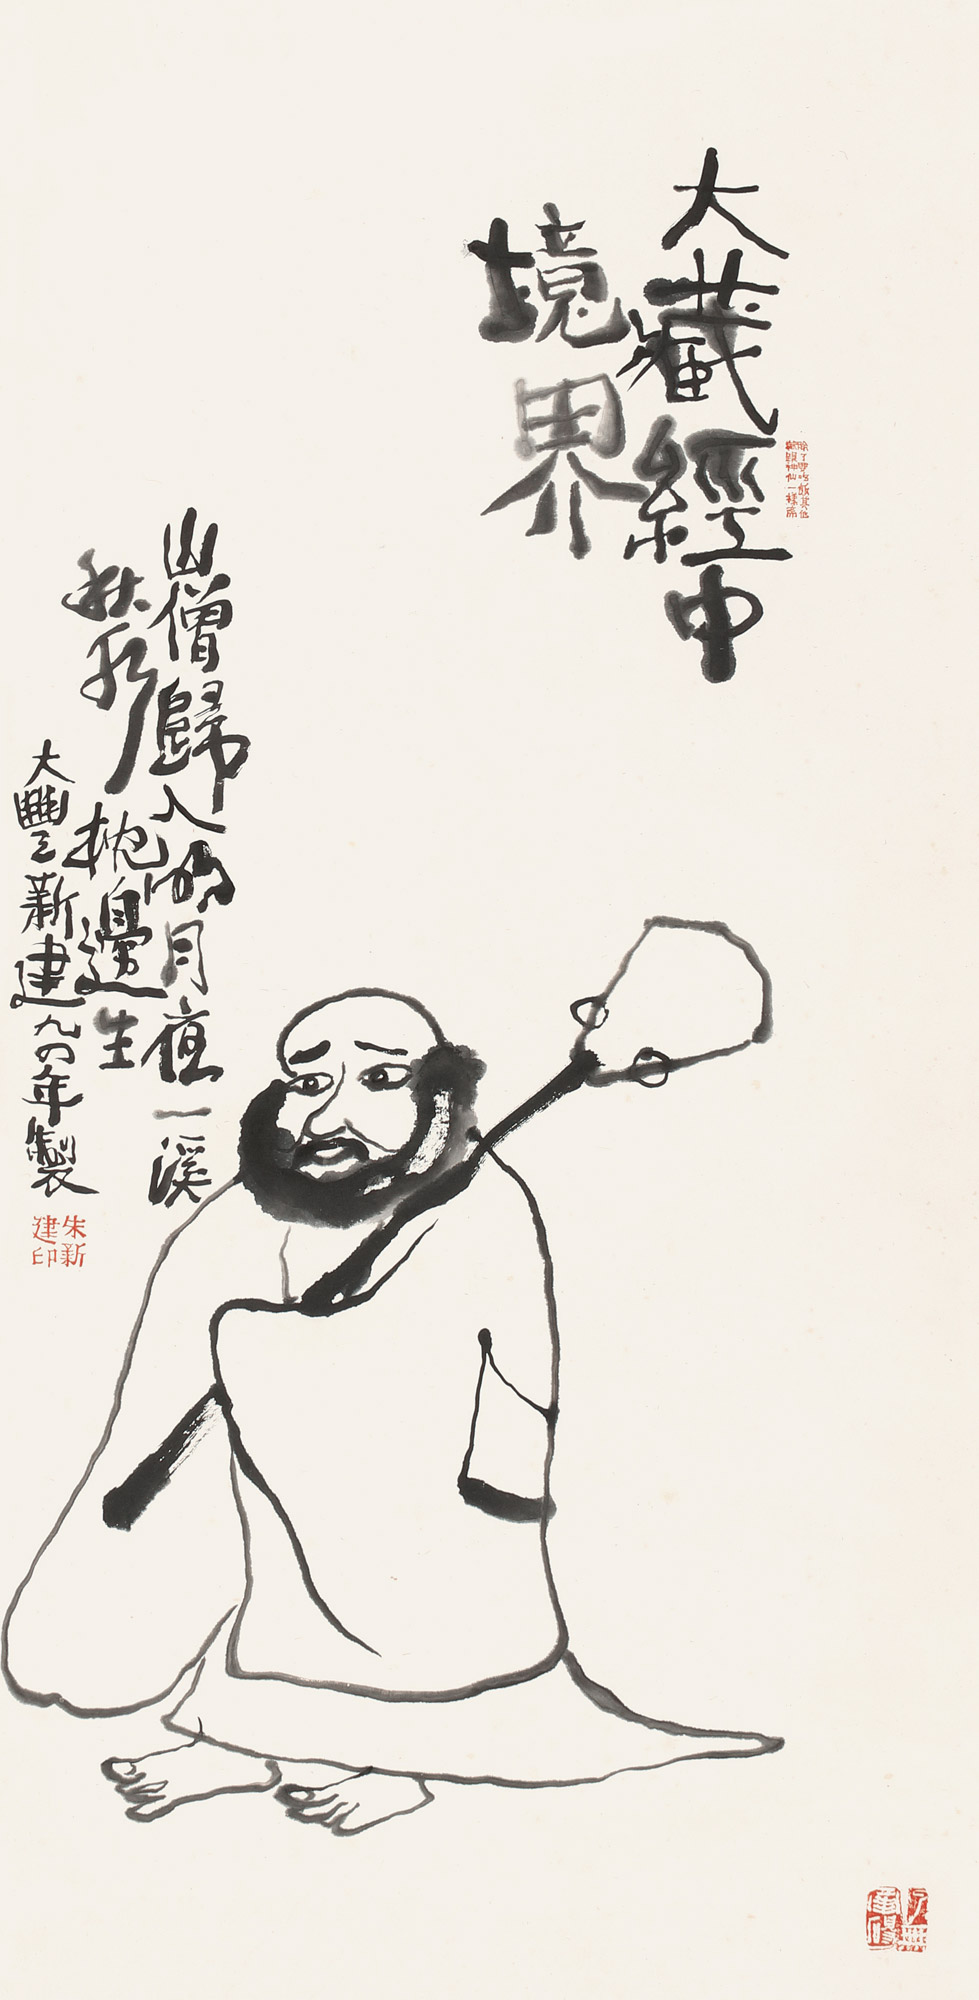 大藏經中
境界
山僧歸入明月夜一溪
秋水枕邊生
大豐新建九四年製
朱新
建印